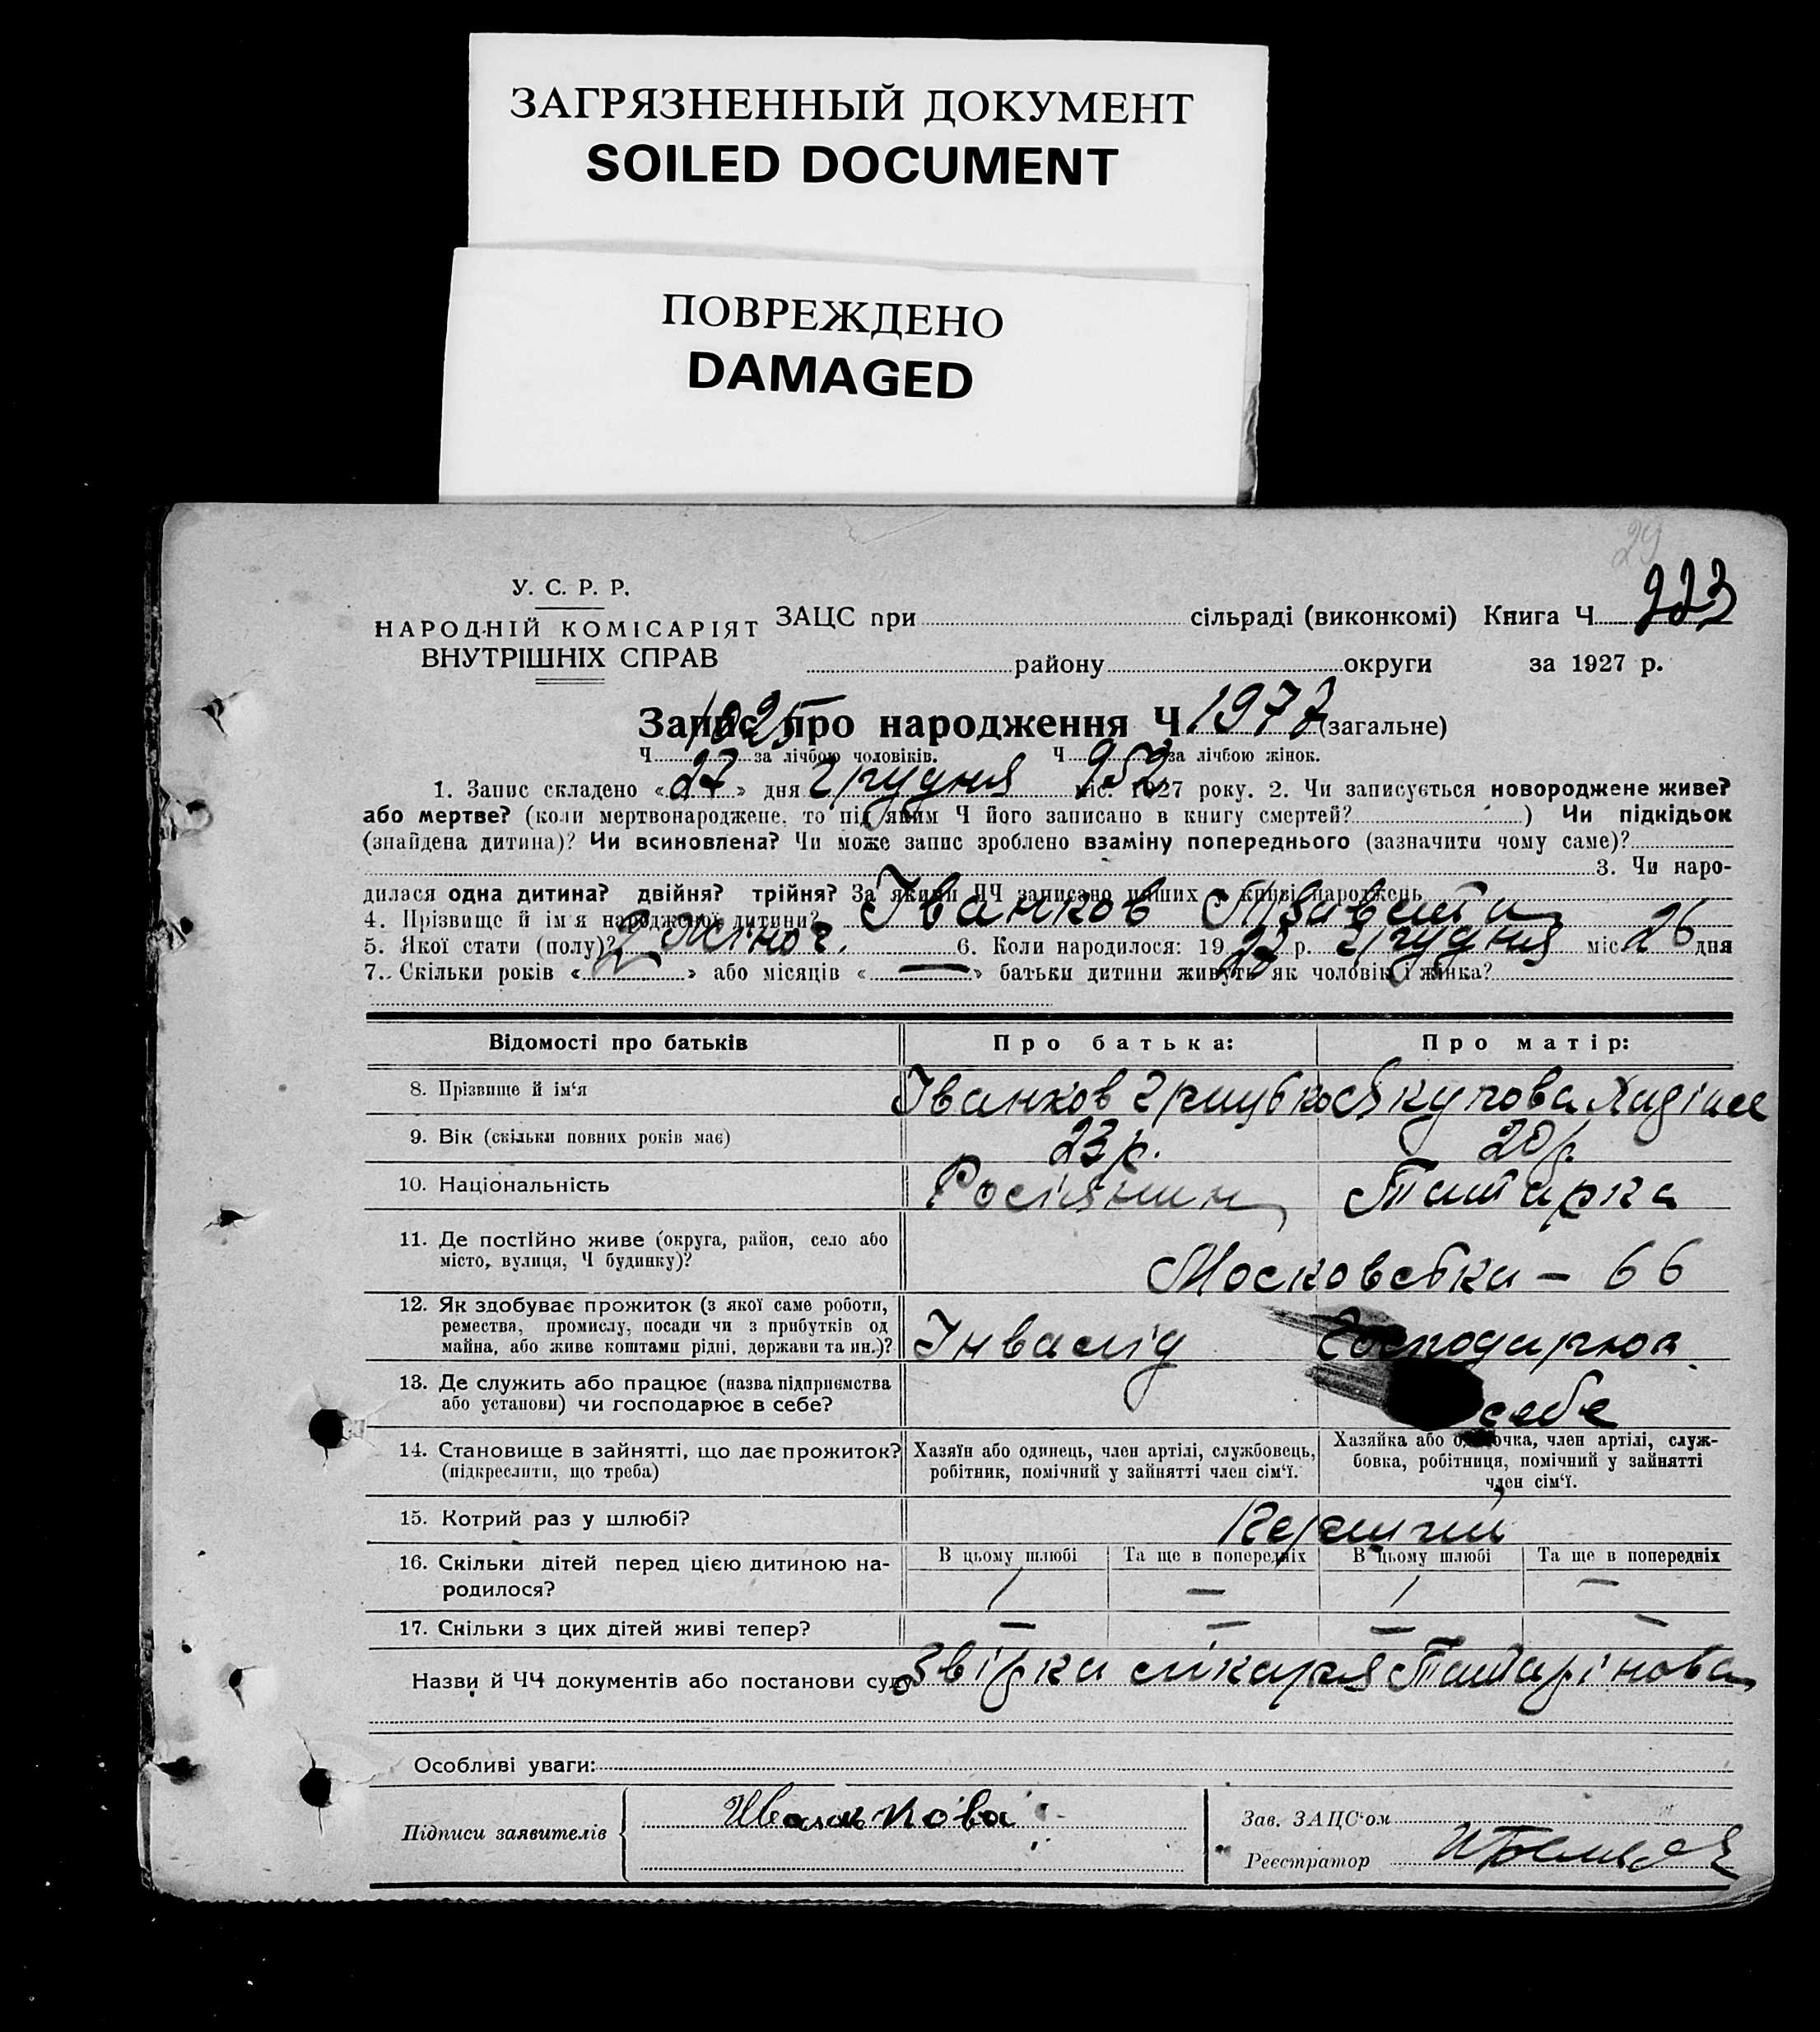 ЗАГРЯЗНЕННЫЙ ДОКУМЕНТ
SOILED DOCUMENT
ПОВРЕЖДЕНО
DAMAGED
29
У. С. Р. Р.
НАРОДНІЙ КОМІСАРІЯТ
ВНУТРІШНІХ СПРАВ
ЗАЦС при сільраді (виконкомі) Книга Ч. 223
району округи за 1927 р.
Запис про народження Ч 1977 (загальне)
Ч. 1025 за лічбою чоловіків. Ч. 952 за лічбою жінок.
1. Запис складено « 27 » дня грудня міс. 1927 року. 2. Чи записується новороджене живе?
або мертве? (коли мертвонароджене, то під яким Ч його записано в книгу смертей? ) Чи підкідьок
(знайдена дитина)? Чи всиновлена? Чи може запис зроблено взаміну попереднього (зазначити чому саме)?
3. Чи наро-
дилася одна дитина? двійня? трійня? За якими ЧЧ записано инших в книзі народжень
4. Прізвище й ім'я народженої дитини? Іванков
5. Якої стати (полу)? жіноч. 6. Коли народилося: 19 27 р. грудня міс. 26 дня
7. Скільки років « 2 » або місяців « — » батьки дитини живуть як чоловік і жінка?
Відомості про батьків Про батька: Про матір:
8. Прізвище й ім'я Іванков Якупова
9. Вік (скільки повних років має) 23 р. 20 р.
10. Національність Росіянин Татарка
11. Де постійно живе (округа, район, село або
місто, вулиця, Ч будинку)? Московська — 66
12. Як здобуває прожиток (з якої саме роботи,
ремества, промислу, посади чи з прибутків од
майна, або живе коштами рідні, держави та ин.)? Інвалід Господарює
13. Де служить або працює (назва підприємства
або установи) чи господарює в себе? себе
14. Становище в зайнятті, що дає прожиток?
(підкреслити, що треба)
Хазяїн або одинець, член артілі, службовець,
робітник, помічний у зайнятті член сім'ї.
Хазяйка або одиночка, член артілі, служ-
бовка, робітниця, помічний у зайнятті
член сім'ї.
15. Котрий раз у шлюбі? Перший
16. Скільки дітей перед цією дитиною на-
родилося?
В цьому шлюбі Та ще в попередніх В цьому шлюбі Та ще в попередніх
1 — 1 —
17. Скільки з цих дітей живі тепер? — — — —
Назви й ЧЧ документів або постанови суду Звірка лікаря Татарінова
Особливі уваги:
Підписи заявителів Иванкова
Зав. ЗАЦС'ом
Реєстратор